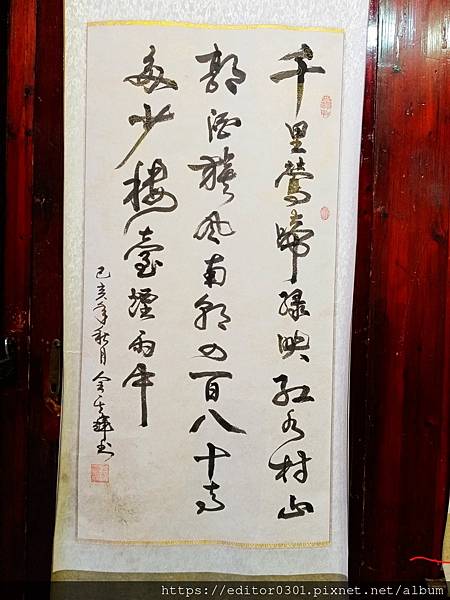 千里鶯啼绿映红水村山
郭酒旗风南朝四百八十寺
多少樓臺煙雨中
己亥年秋月
https://editor0301.pixnet.net/album